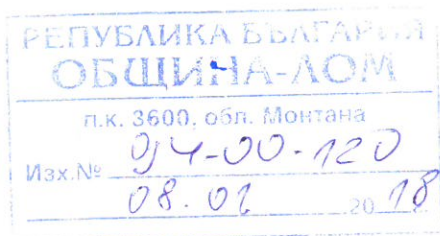 РЕПУБЛИКА БЪЛГАРИЯ
ОБЩИНА-ЛОМ
п.к. 3600, обл. Монтана
Изх.№ 94-00-120
08.01 2018